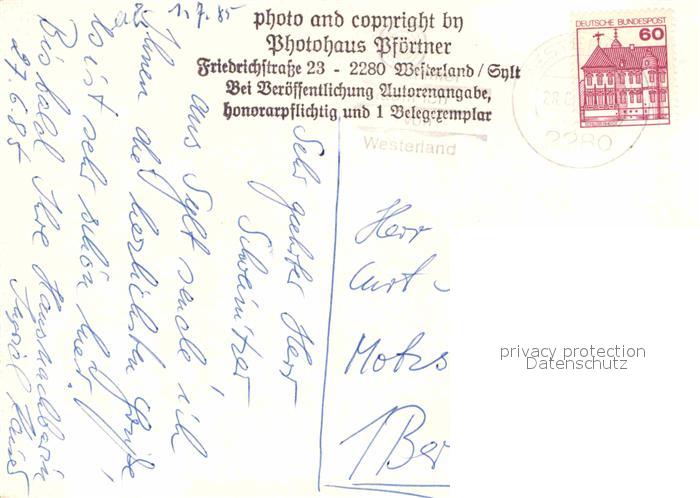 a. 1.7.85
photo and copyright by
Photohaus Pförtner
Friedrichstraße 23 - 2280 Westerland / Sylt
Bei Veröffentlichung Autorenangabe,
honorarpflichtig und 1 Belegexemplar
DEUTSCHE BUNDESPOST
60
Westerland
2280
Sehr geehrter Herr
Schweinitzer
aus Sylt sende ich
Ihnen die herzlichsten Grüße
Es ist sehr schön hier!
Bis bald Ihre Hausnachbarin
27.6.85
Herr
Curt
Motzs
1 Ber
privacy protection
Datenschutz